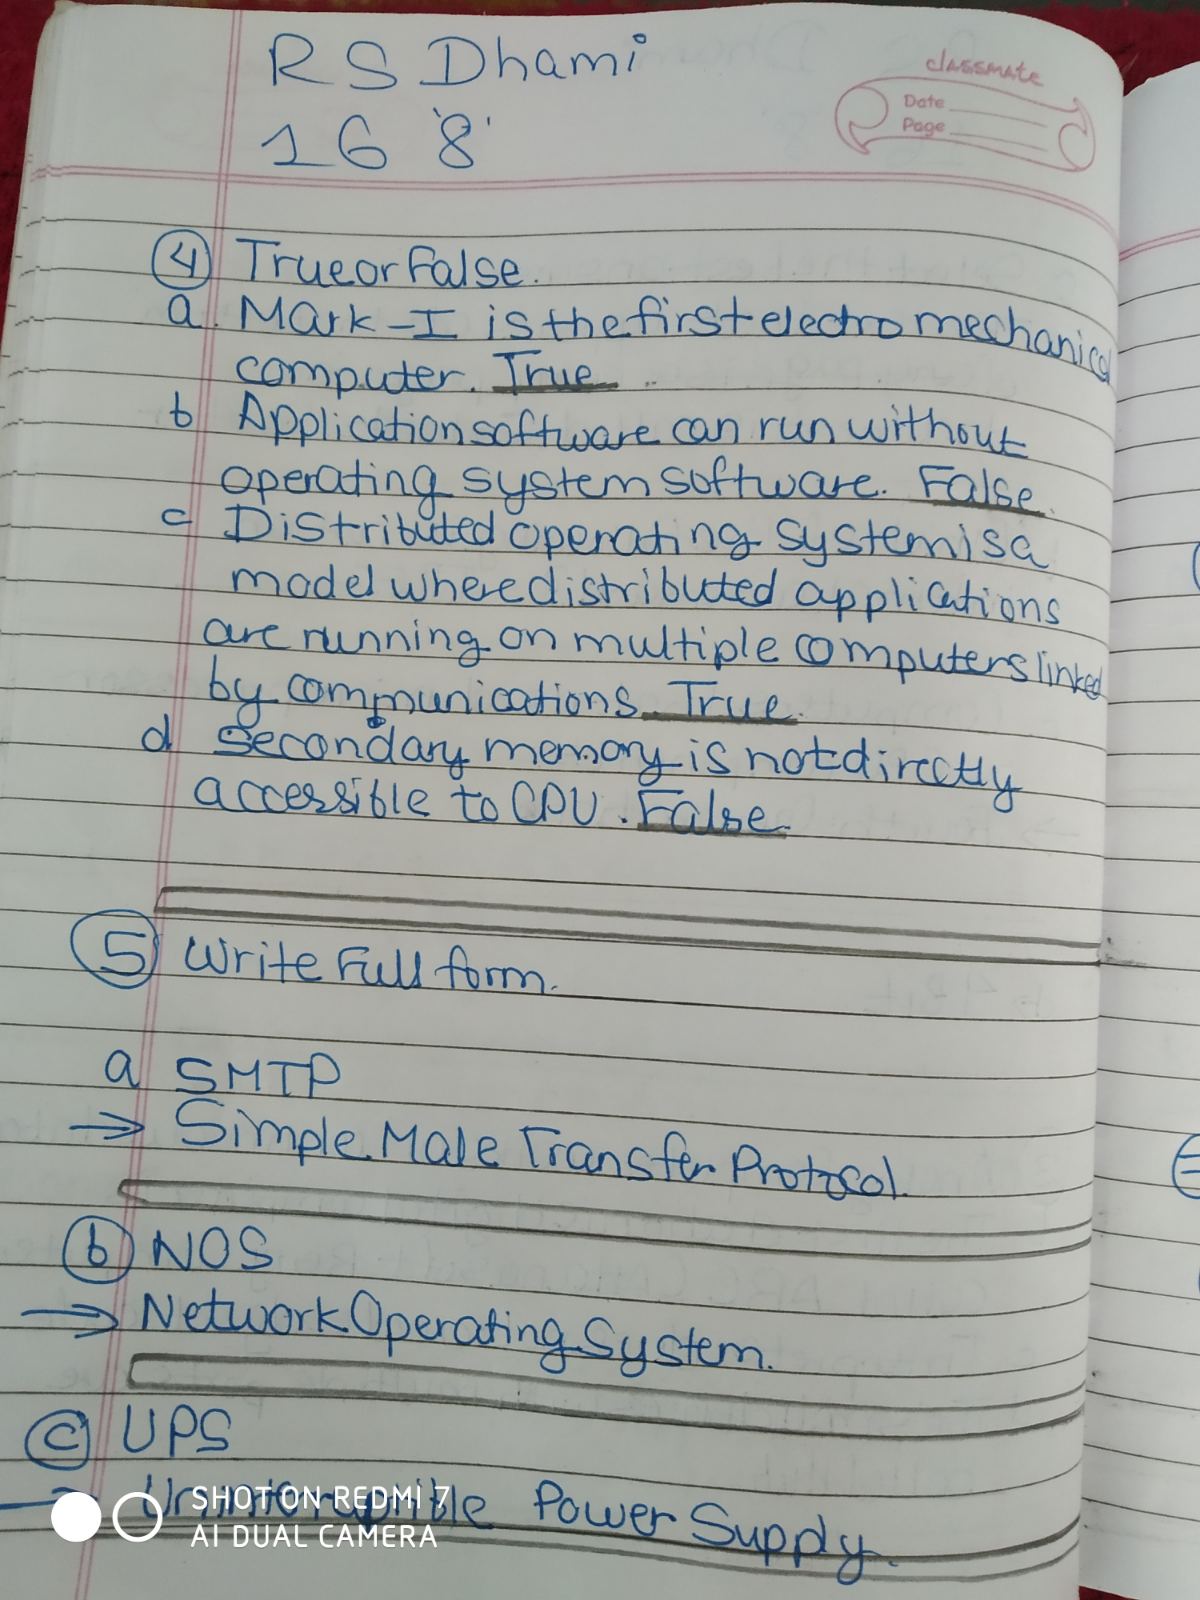 RS Dhami
16 '8'
classmate
Date
Page
4 True or False.
a. Mark-I is the first electro mechanical
computer. True
b Application software can run without
operating system software. False.
c Distributed operating system is a
model where distributed applications
are running on multiple computers linked
by communications. True.
d Secondary memory is not directly
accessible to CPU. False.
5 Write Full form.
a SMTP
→ Simple Male Transfer Protocol.
b NOS
→ Network Operating System.
c UPS
→ Power Supply.
SHOT ON REDMI 7
AI DUAL CAMERA